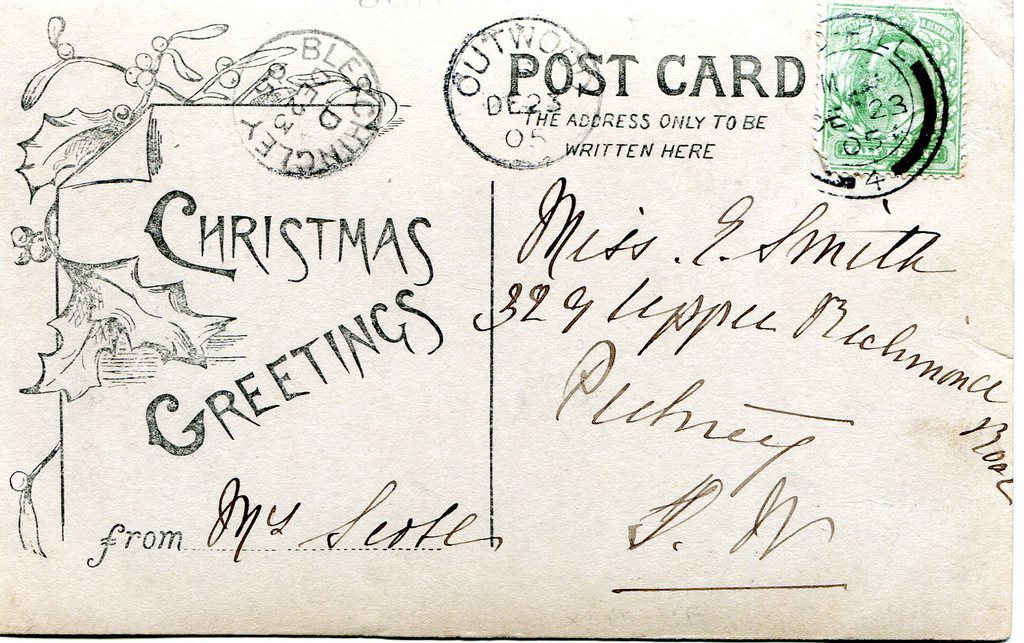 BLETCHINGLEY
D
DE 23
05
OUTWOOD
DE 23
05
POST CARD
THE ADDRESS ONLY TO BE
WRITTEN HERE
HILL
DE 23
05
4
CHRISTMAS
GREETINGS
from Mrs Scott
Miss. E. Smith
329 Upper Richmond Road
Putney
S. W